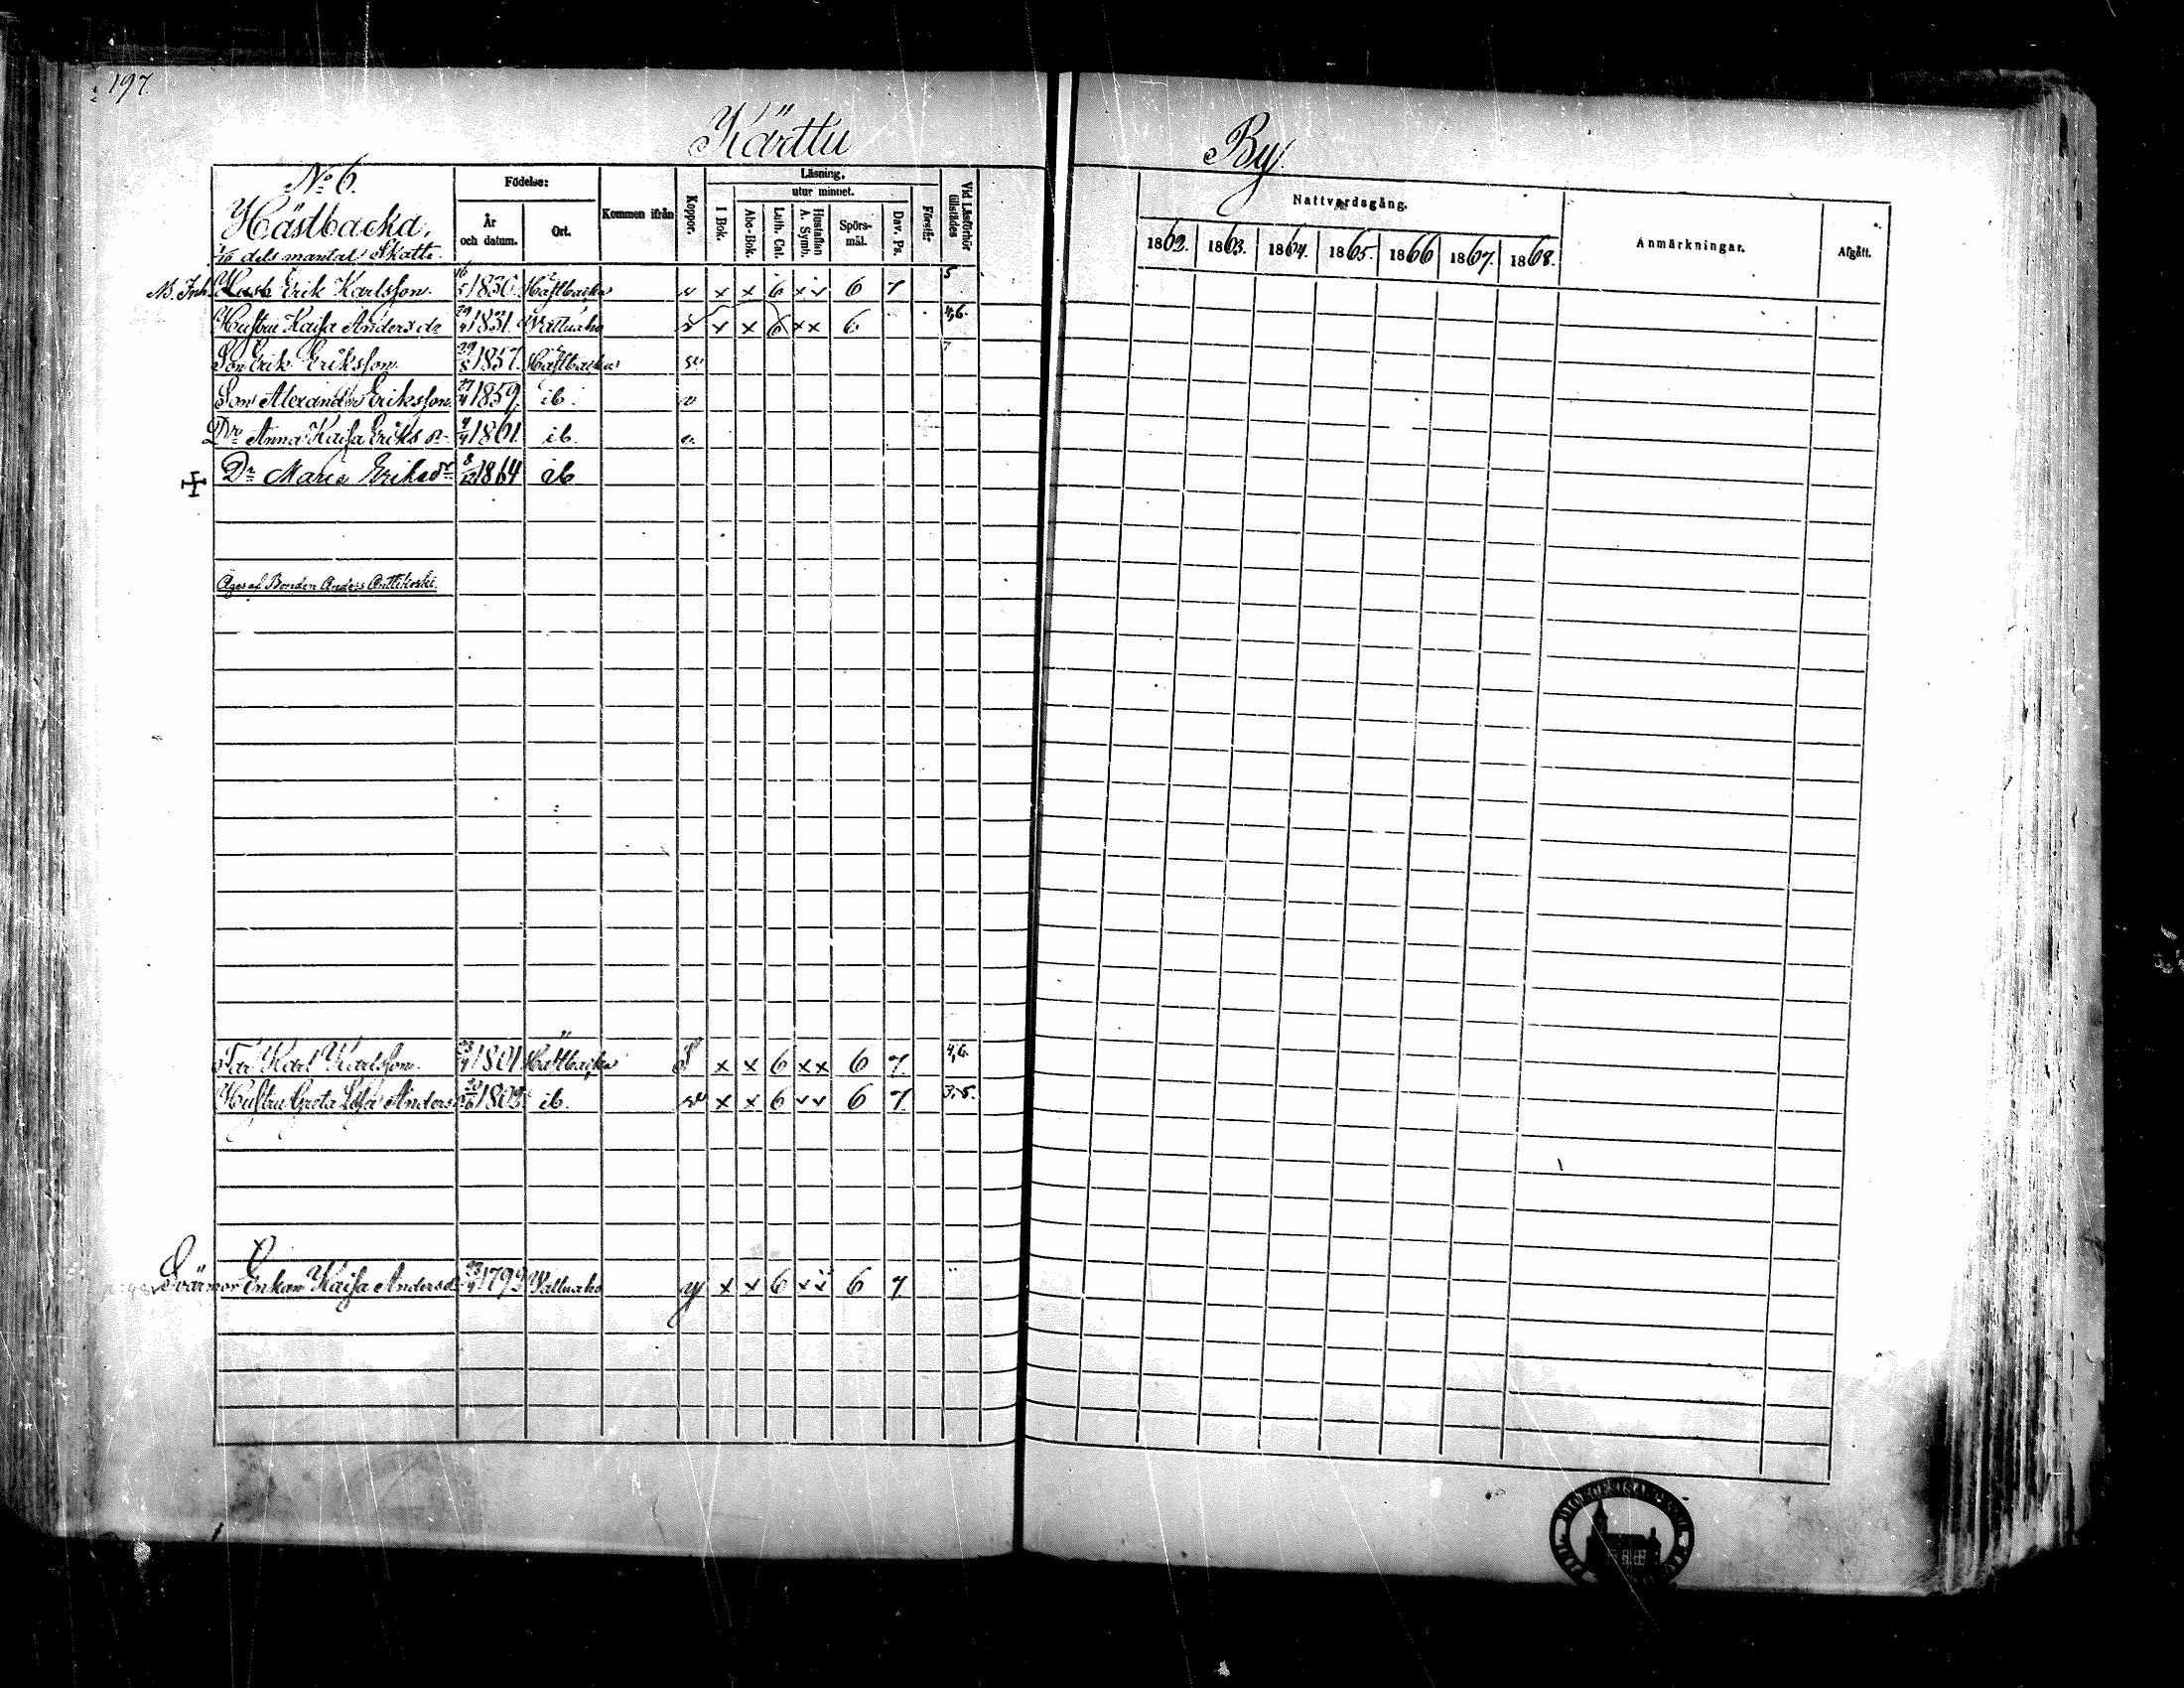 197.
Kärttu By.
No 6.
Hästbacka,
1/16 dels mantal Skatte.
Födelse:
År och datum.
Ort.
Kommen ifrån
Koppor.
Läsning,
utur minnet.
I Bok.
Abc-Bok.
Luth. Cat.
Hustaflan A. Symb.
Spörsmål.
Dav. Ps.
Förstår
Vid Läsförhör tillstädes
Nattvardsgång.
1862. 1863. 1864. 1865. 1866 1867. 1868.
Anmärkningar.
Afgått.
Erik Karlsson. 16/5 1830. Hästbacka v x x 6 x v 6 7 5
Hustru Kaisa Anders dr 29/4 1831. v x x 6 x x 6 4,6.
Son Erik Eriksson. 29/8 1857. Hästbacka
Son Alexander Eriksson. 27/4 1859. ib. v
Dr Anna Kaisa Eriks dr 4/4 1861. ib. v.
Dr Maria Eriks dr 8/12 1864 ib
Äges af Bonden Anders Anttikoski.
Far Karl Karlsson. 23/4 1801 Hästbacka x x 6 x x 6 7. 4,6.
Hustru Greta Lisa Anders 1803 ib. x x 6 v v 6 7. 3,5.
Svärmor Enkan Kaisa Andersdr 23/4 1793 x x 6 x x 6 7.